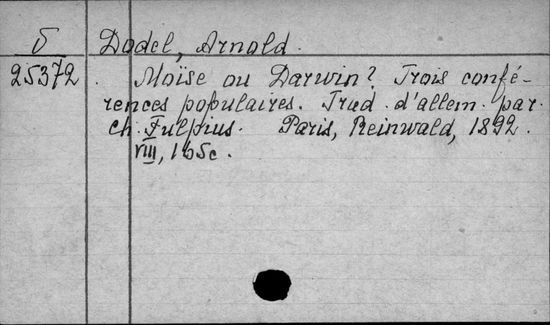 δ Dodel, Arnold.
25372 Moïse ou Darwin? Trois confé-
rences populaires. Trad. d'allem. par
Ch. Fulpius. Paris, Reinwald, 1892.
VIII, 165c.